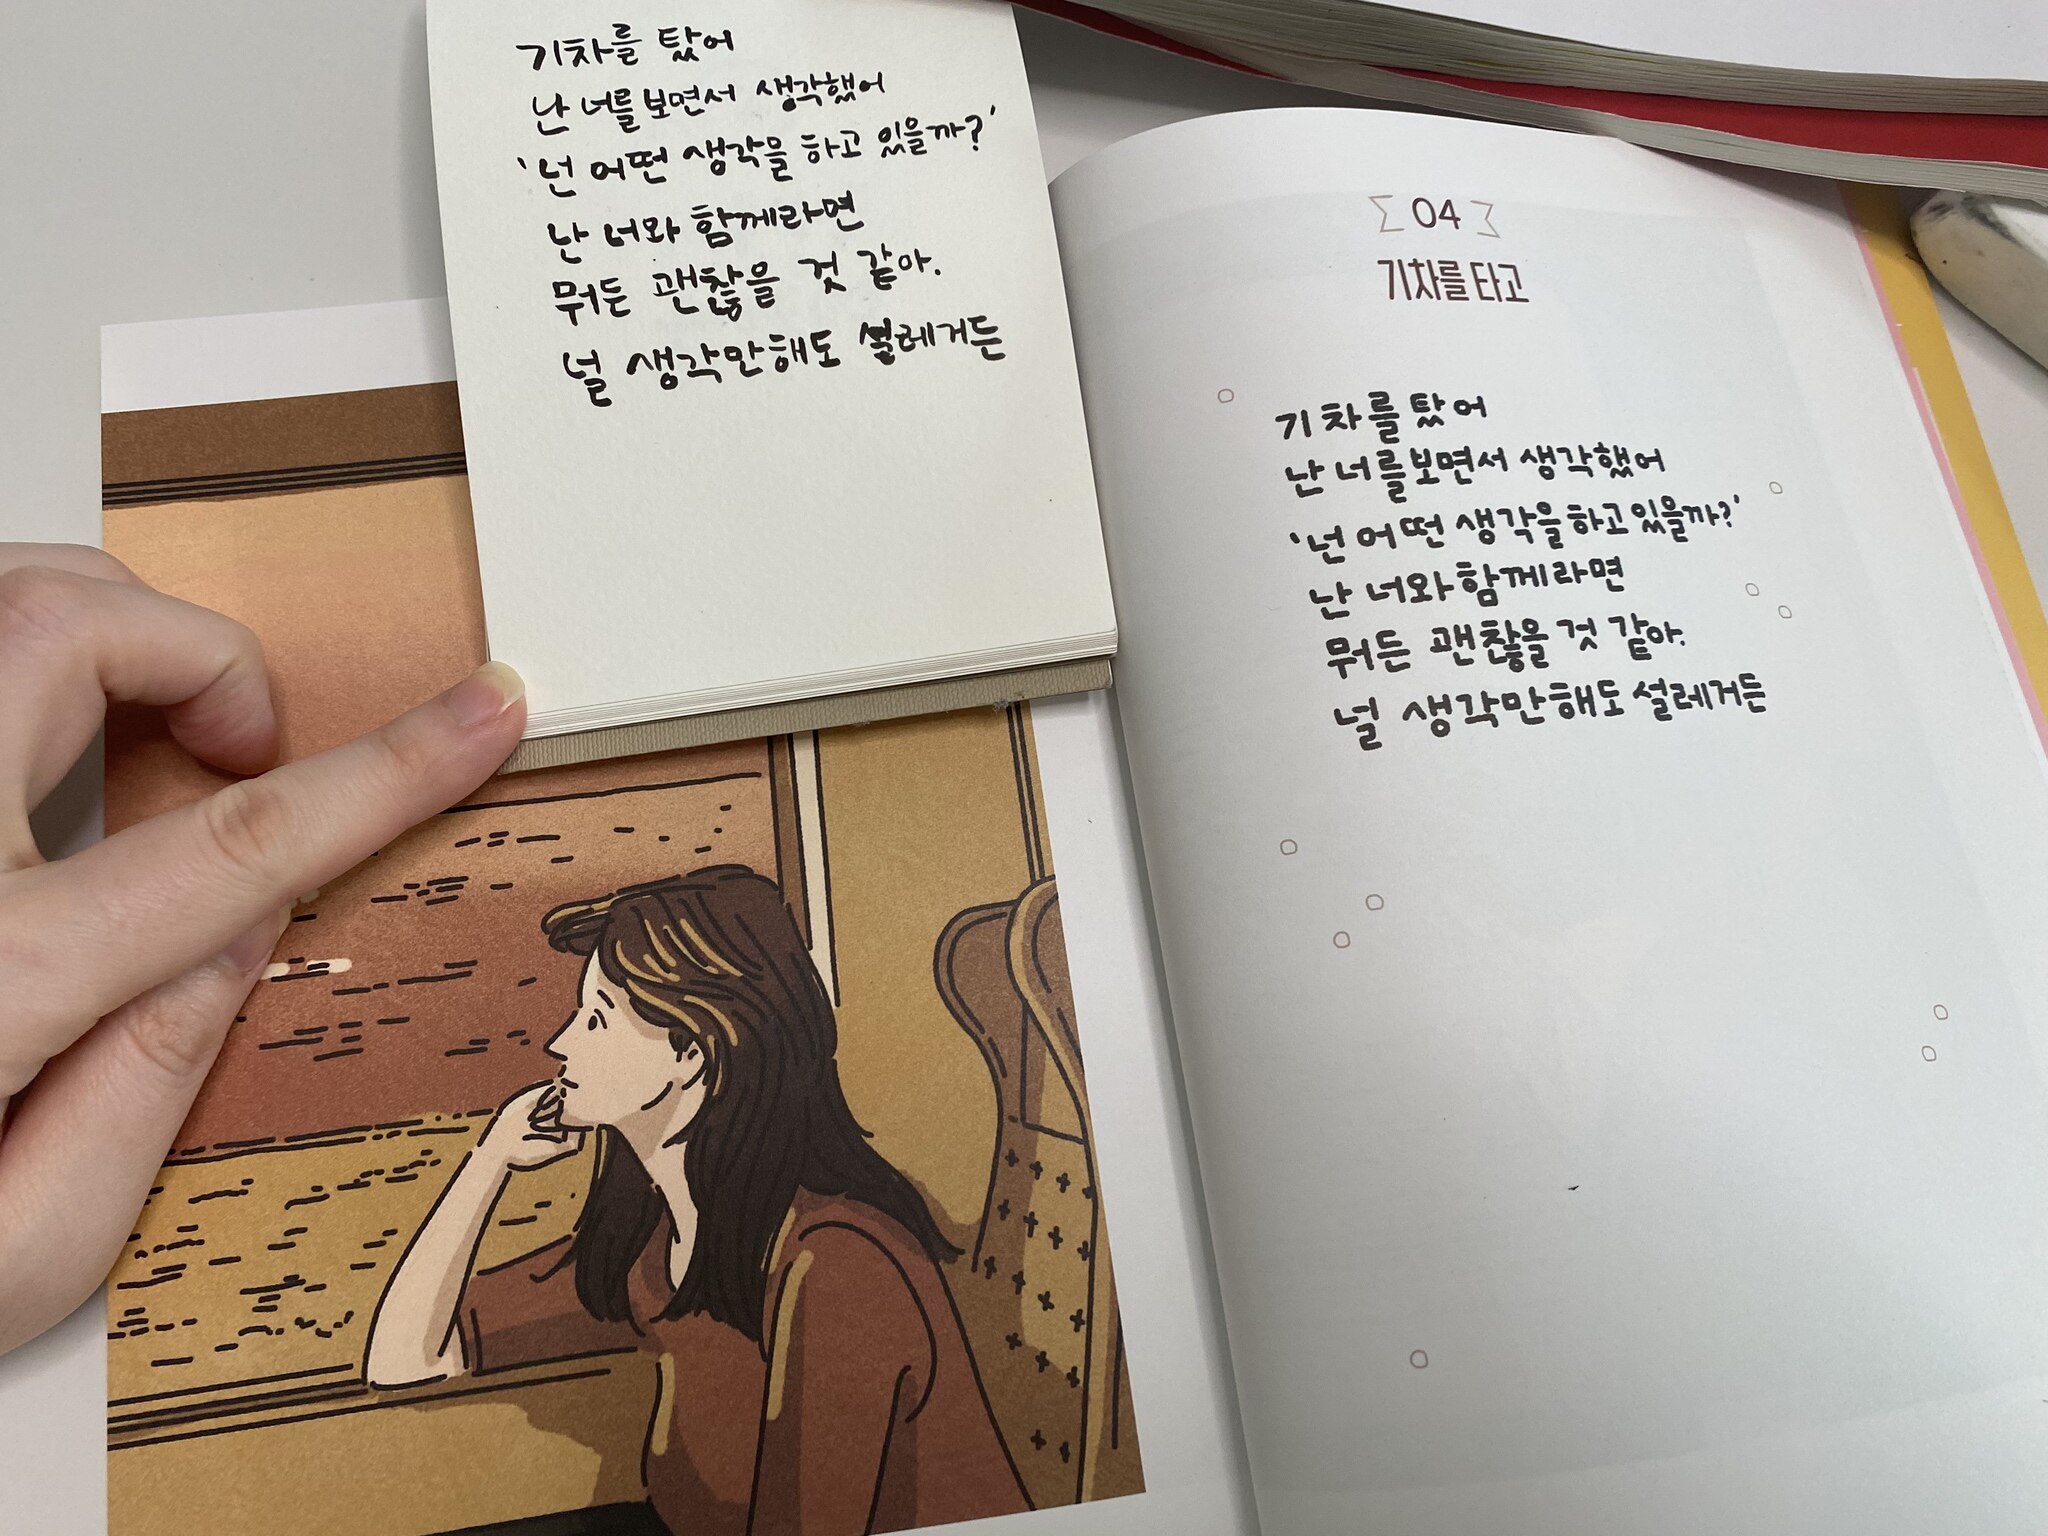 기차를 탔어
난 너를 보면서 생각했어
'넌 어떤 생각을 하고 있을까?'
난 너와 함께라면
뭐든 괜찮을 것 같아.
널 생각만해도 설레거든
04
기차를 타고
기차를 탔어
난 너를 보면서 생각했어
'넌 어떤 생각을 하고 있을까?'
난 너와 함께라면
뭐든 괜찮을 것 같아.
널 생각만해도 설레거든